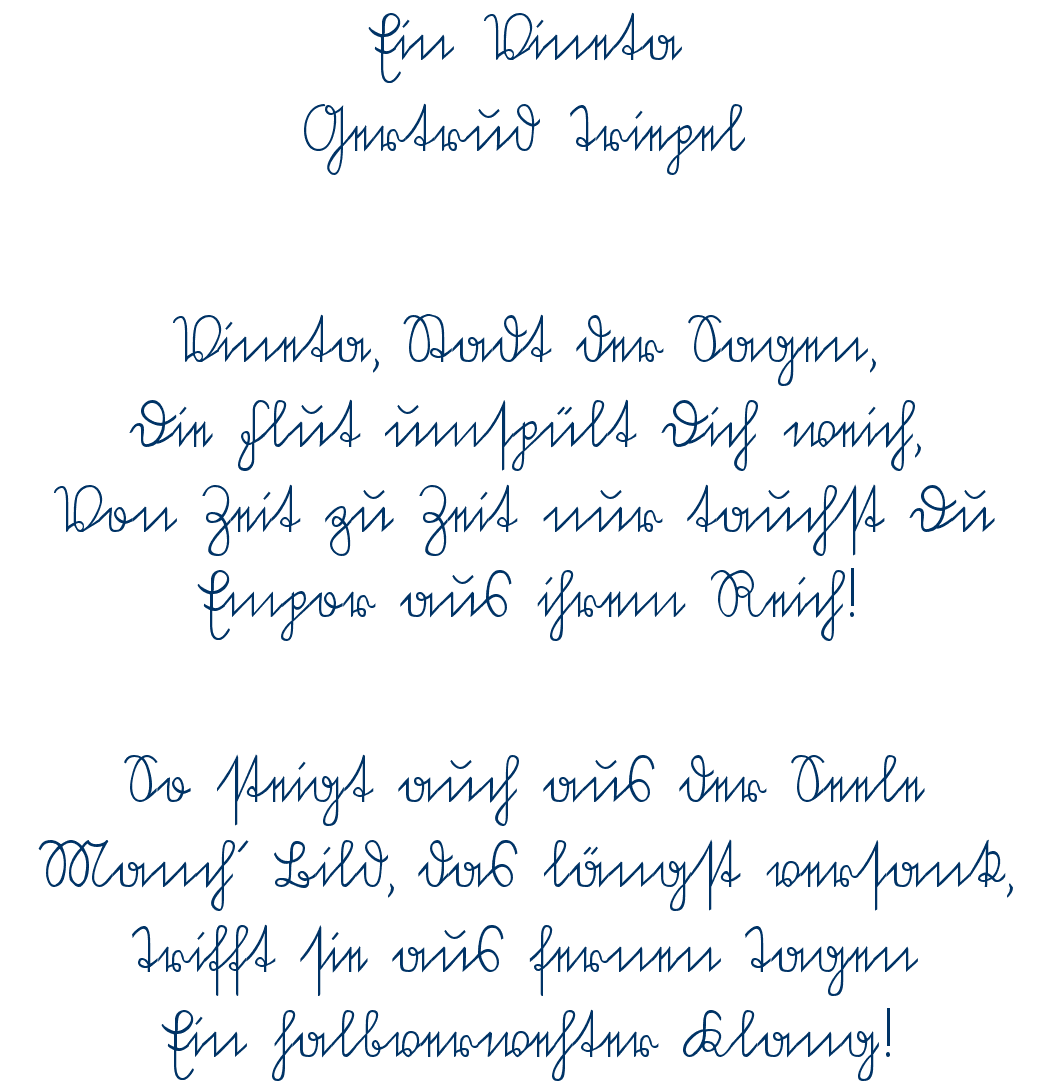 Ein Vineta
Gertrud Triepel
Vineta, Stadt der Sagen,
Die Flut umspült Dich weich,
Von Zeit zu Zeit nur tauchst Du
Empor aus ihrem Reich!
So steigt auch aus der Seele
Manch' Bild, das längst versank,
Trifft sie aus fernen Tagen
Ein halbverwehter Klang!